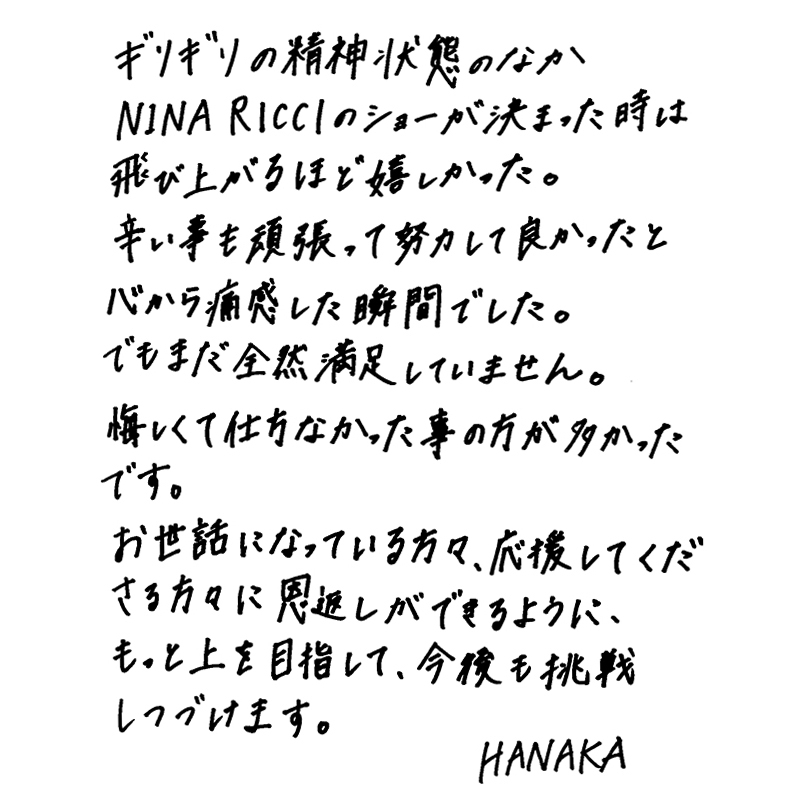 ギリギリの精神状態のなか
NINA RICCIのショーが決まった時は
飛び上がるほど嬉しかった。
辛い事も頑張って努力して良かったと
心から痛感した瞬間でした。
でもまだ全然満足していません。
悔しくて仕方なかった事の方が多かった
です。
お世話になっている方々、応援してくだ
さる方々に恩返しができるように、
もっと上を目指して、今後も挑戦
しつづけます。
HANAKA